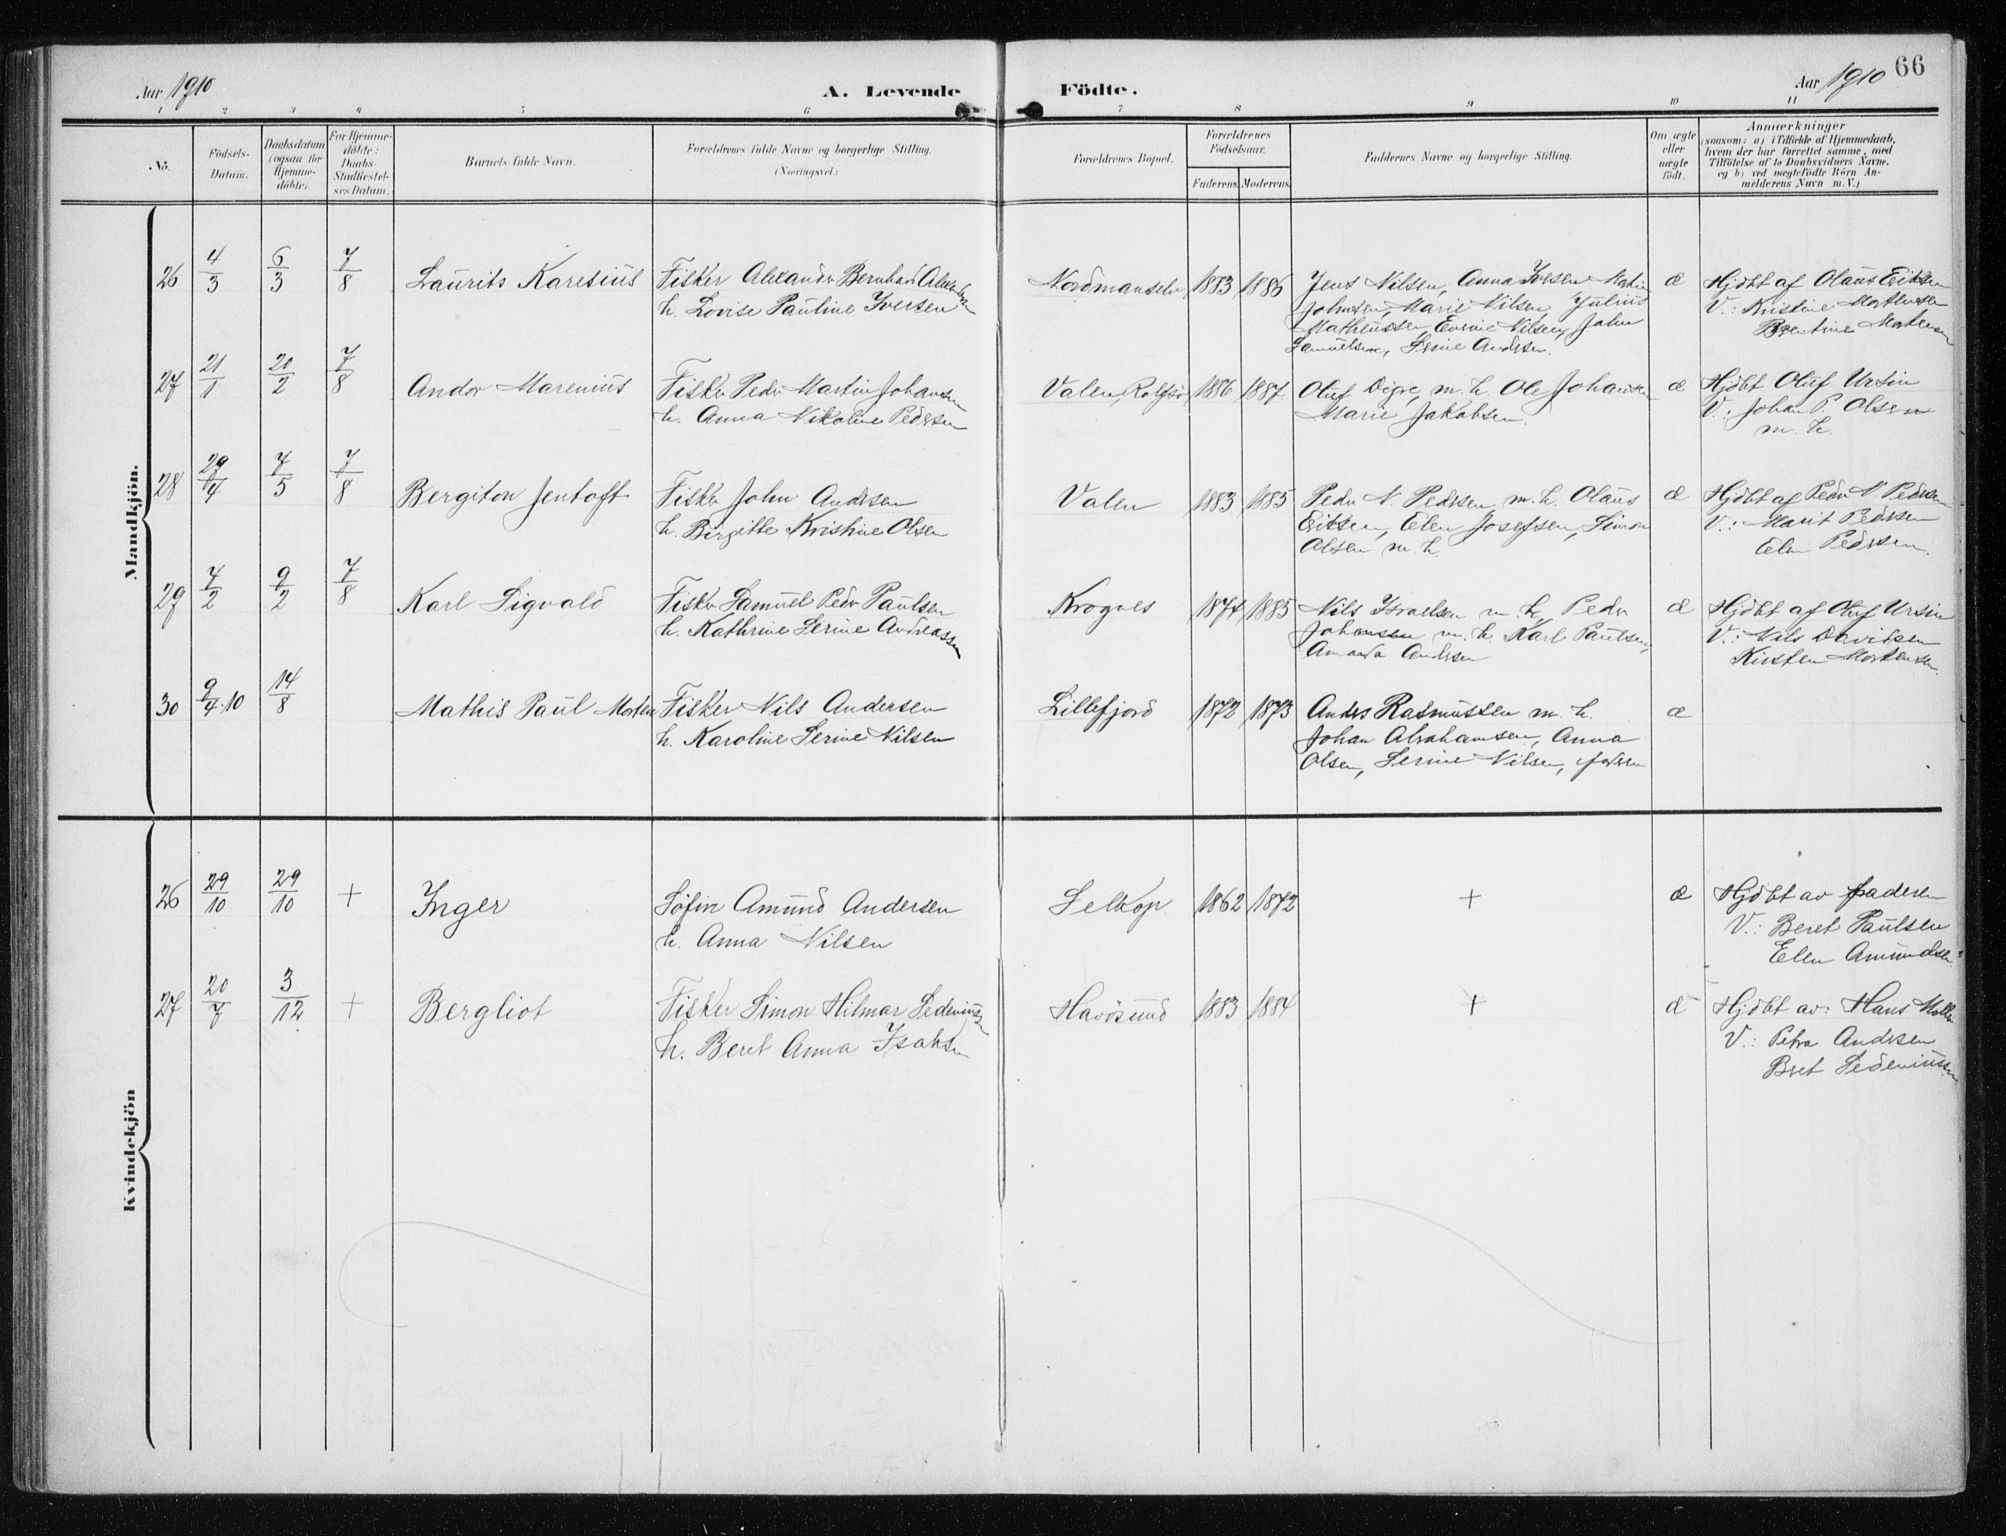 Aar 1910
A. Levende Födte.
Aar 1910
66
1 2 3 4 5 6 7 8 9 10 11
No.
Födsels-Datum.
Daabsdatum (ogsaa for Hjemme-döbte).
For Hjemme-döbte: Daabs-Stadfæstel-ses Datum.
Barnets fulde Navn.
Forældrenes fulde Navne og borgerlige Stilling. (Næringsvei.)
Forældrenes Bopæl.
Forældrenes Födselsaar.
Faderens. Moderens.
Faddernes Navne og borgerlige Stilling.
Om ægte eller uægte födt.
Anmærkninger
(saasom: a) i Tilfælde af Hjemmedaab,
hvem der har forrettet samme, med
Tilföielse af to Daabsvidners Navne.
og b) ved uægtefödte Börn An-
melderens Navn m. V.)
Mandkjön.
26 4/3 6/3 7/8 Laurits Karesius Fisker Alexander Bernhard
h. Lovise Pauline Iversen
Nordmanselv 1883 1886 Jens Nilsen, Anna Iversen Martin
Johnsen, Marie Nilsen, Julius
Matheussen, Nilsen, John
Samuelsen, Serine Andersen.
æ Hjdbt af Olaus Eriksen
V.: Kristine Mortensen
Bentine Mortensen
27 21/1 20/2 7/8 Andor Marenius Fisker Peder Martin Johansen
h. Anna Nikoline Pedersen
Valen, Rolfsö 1886 1887. Oluf Digre, m. h. Ole Johansen
Marie Jakobsen.
æ Hjdbt Oluf Ursin
V.: Johan P. Olsen
m. h.
28 29/4 7/5 7/8 Bergiton Jentoft Fisker John Andersen
h. Birgitte Kristine Olsen
Valen 1883 1885 Peder N. Pedersen m. h. Olaus
Eriksen, Elen Josefsen, Simon
Olsen m. h.
æ Hjdbt af Peder N. Pedersen
V.: Marit Pedersen
Elen Pedersen.
29 7/2 9/2 7/8 Karl Sigvald Fisker Samuel Peder Paulsen
h. Kathrine Serine Andreassen
Krognes 1874 1885 Nils Israelsen m. h. Peder
Johansen m. h. Karl Paulsen,
Amanda Andersen
æ Hjdbt af Oluf Ursin
V.: Nils Davidsen
Kirsten Mortensen.
30 9/7 10 14/8 Mathis Paul Morten Fisker Nils Andersen
h. Karoline Serine Nilsen
Lillefjord 1872 1873 Anders Rasmussen m. h.
Johan Abrahamsen, Anna
Olsen, Serine Nilsen, faderen
æ
Kvindekjön
26 29/10 29/10 + Inger Söfin Amund Andersen
h. Anna Nilsen
Selkop 1862 1872 + æ Hjdbt av faderen
V.: Beret Paulsen
Elen Amundsen.
27 20/7 3/12 + Bergliot Fisker Simon Hilmar Sedeniussen
h. Beret Anna Isaksen
Havösund 1883 1884 + æ Hjdbt av: Hans Möller
V.: Petra Andersen
Beret Sedeniussen